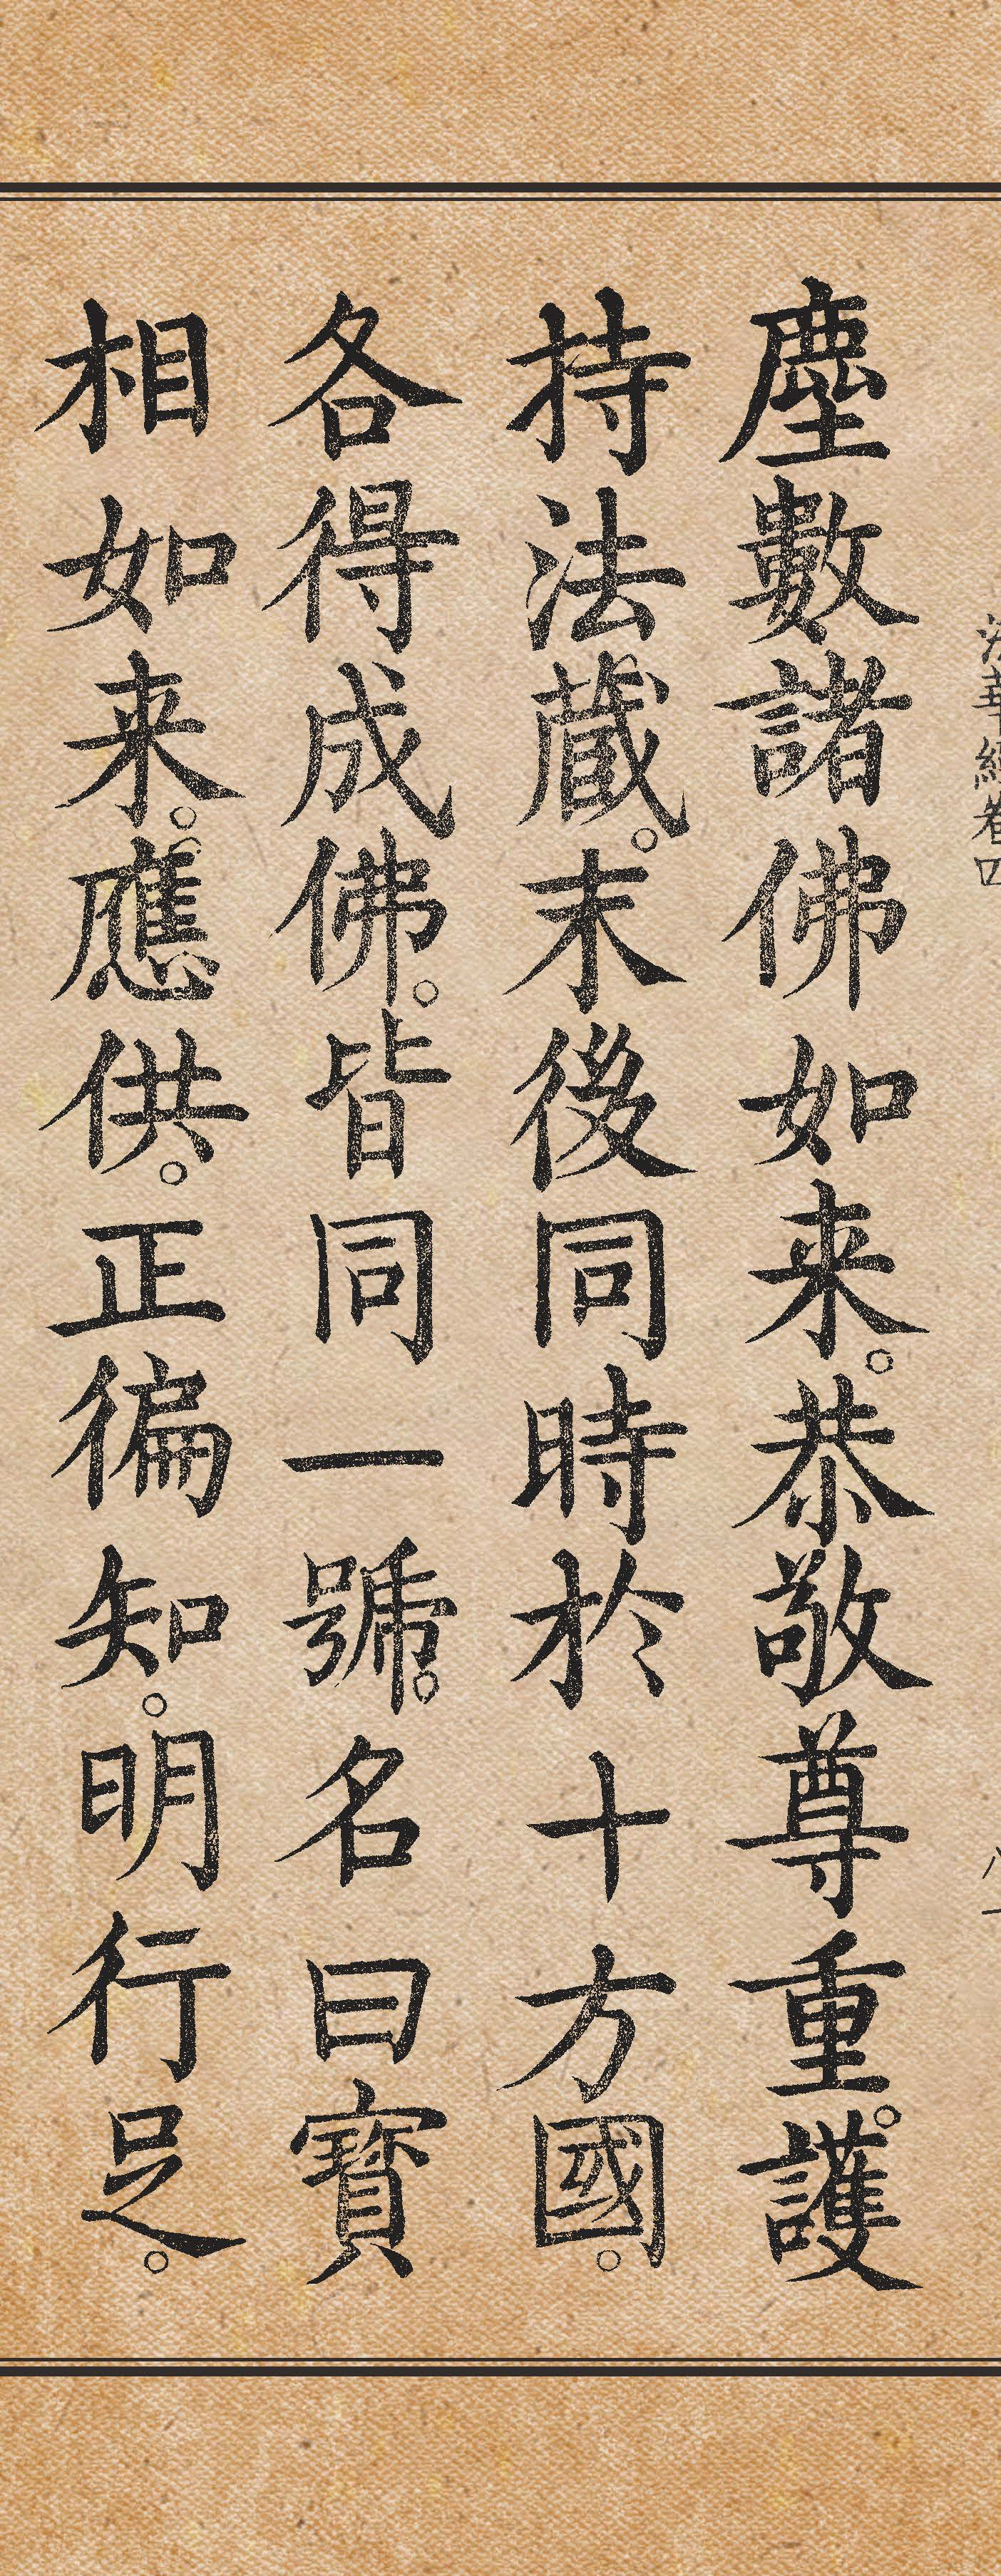 塵數諸佛如来。恭敬尊重。護
持法蔵。末後同時於十方國。
各得成佛。皆同一號。名曰寳
相如来。應供。正徧知。明行足。